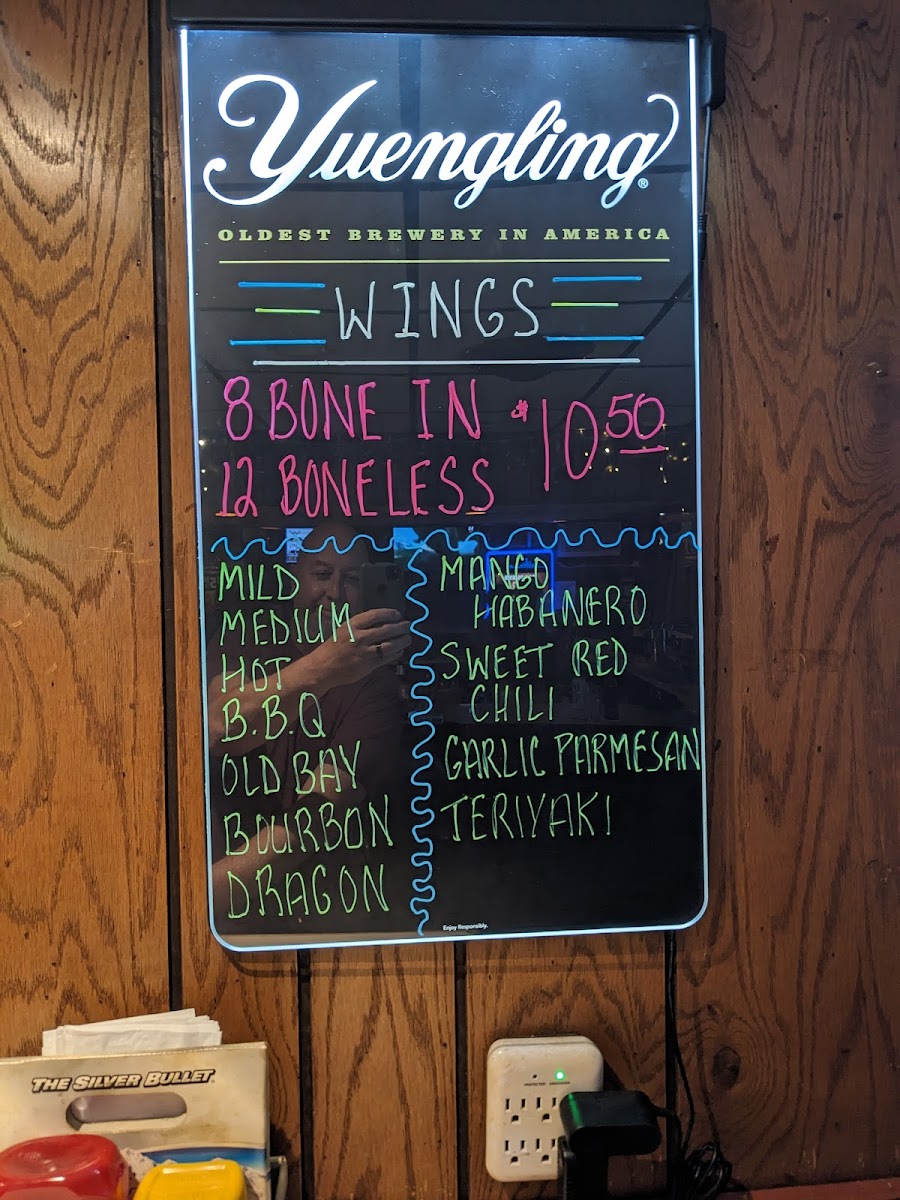 Yuengling®
OLDEST BREWERY IN AMERICA
WINGS
8 BONE IN
12 BONELESS
$10 50
MILD
MEDIUM
HOT
B.B.Q
OLD BAY
BOURBON
DRAGON
MANGO
HABANERO
SWEET RED
CHILI
GARLIC PARMESAN
TERIYAKI
Enjoy Responsibly.
THE SILVER BULLET